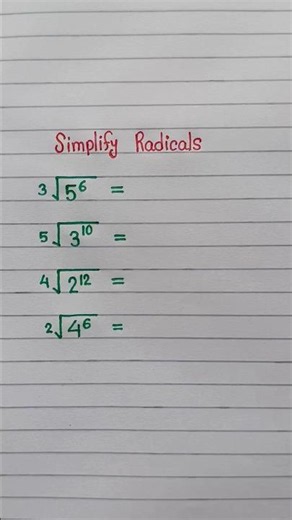 Simplify Radicals
3√5⁶ =
5√3¹⁰ =
4√2¹² =
2√4⁶ =